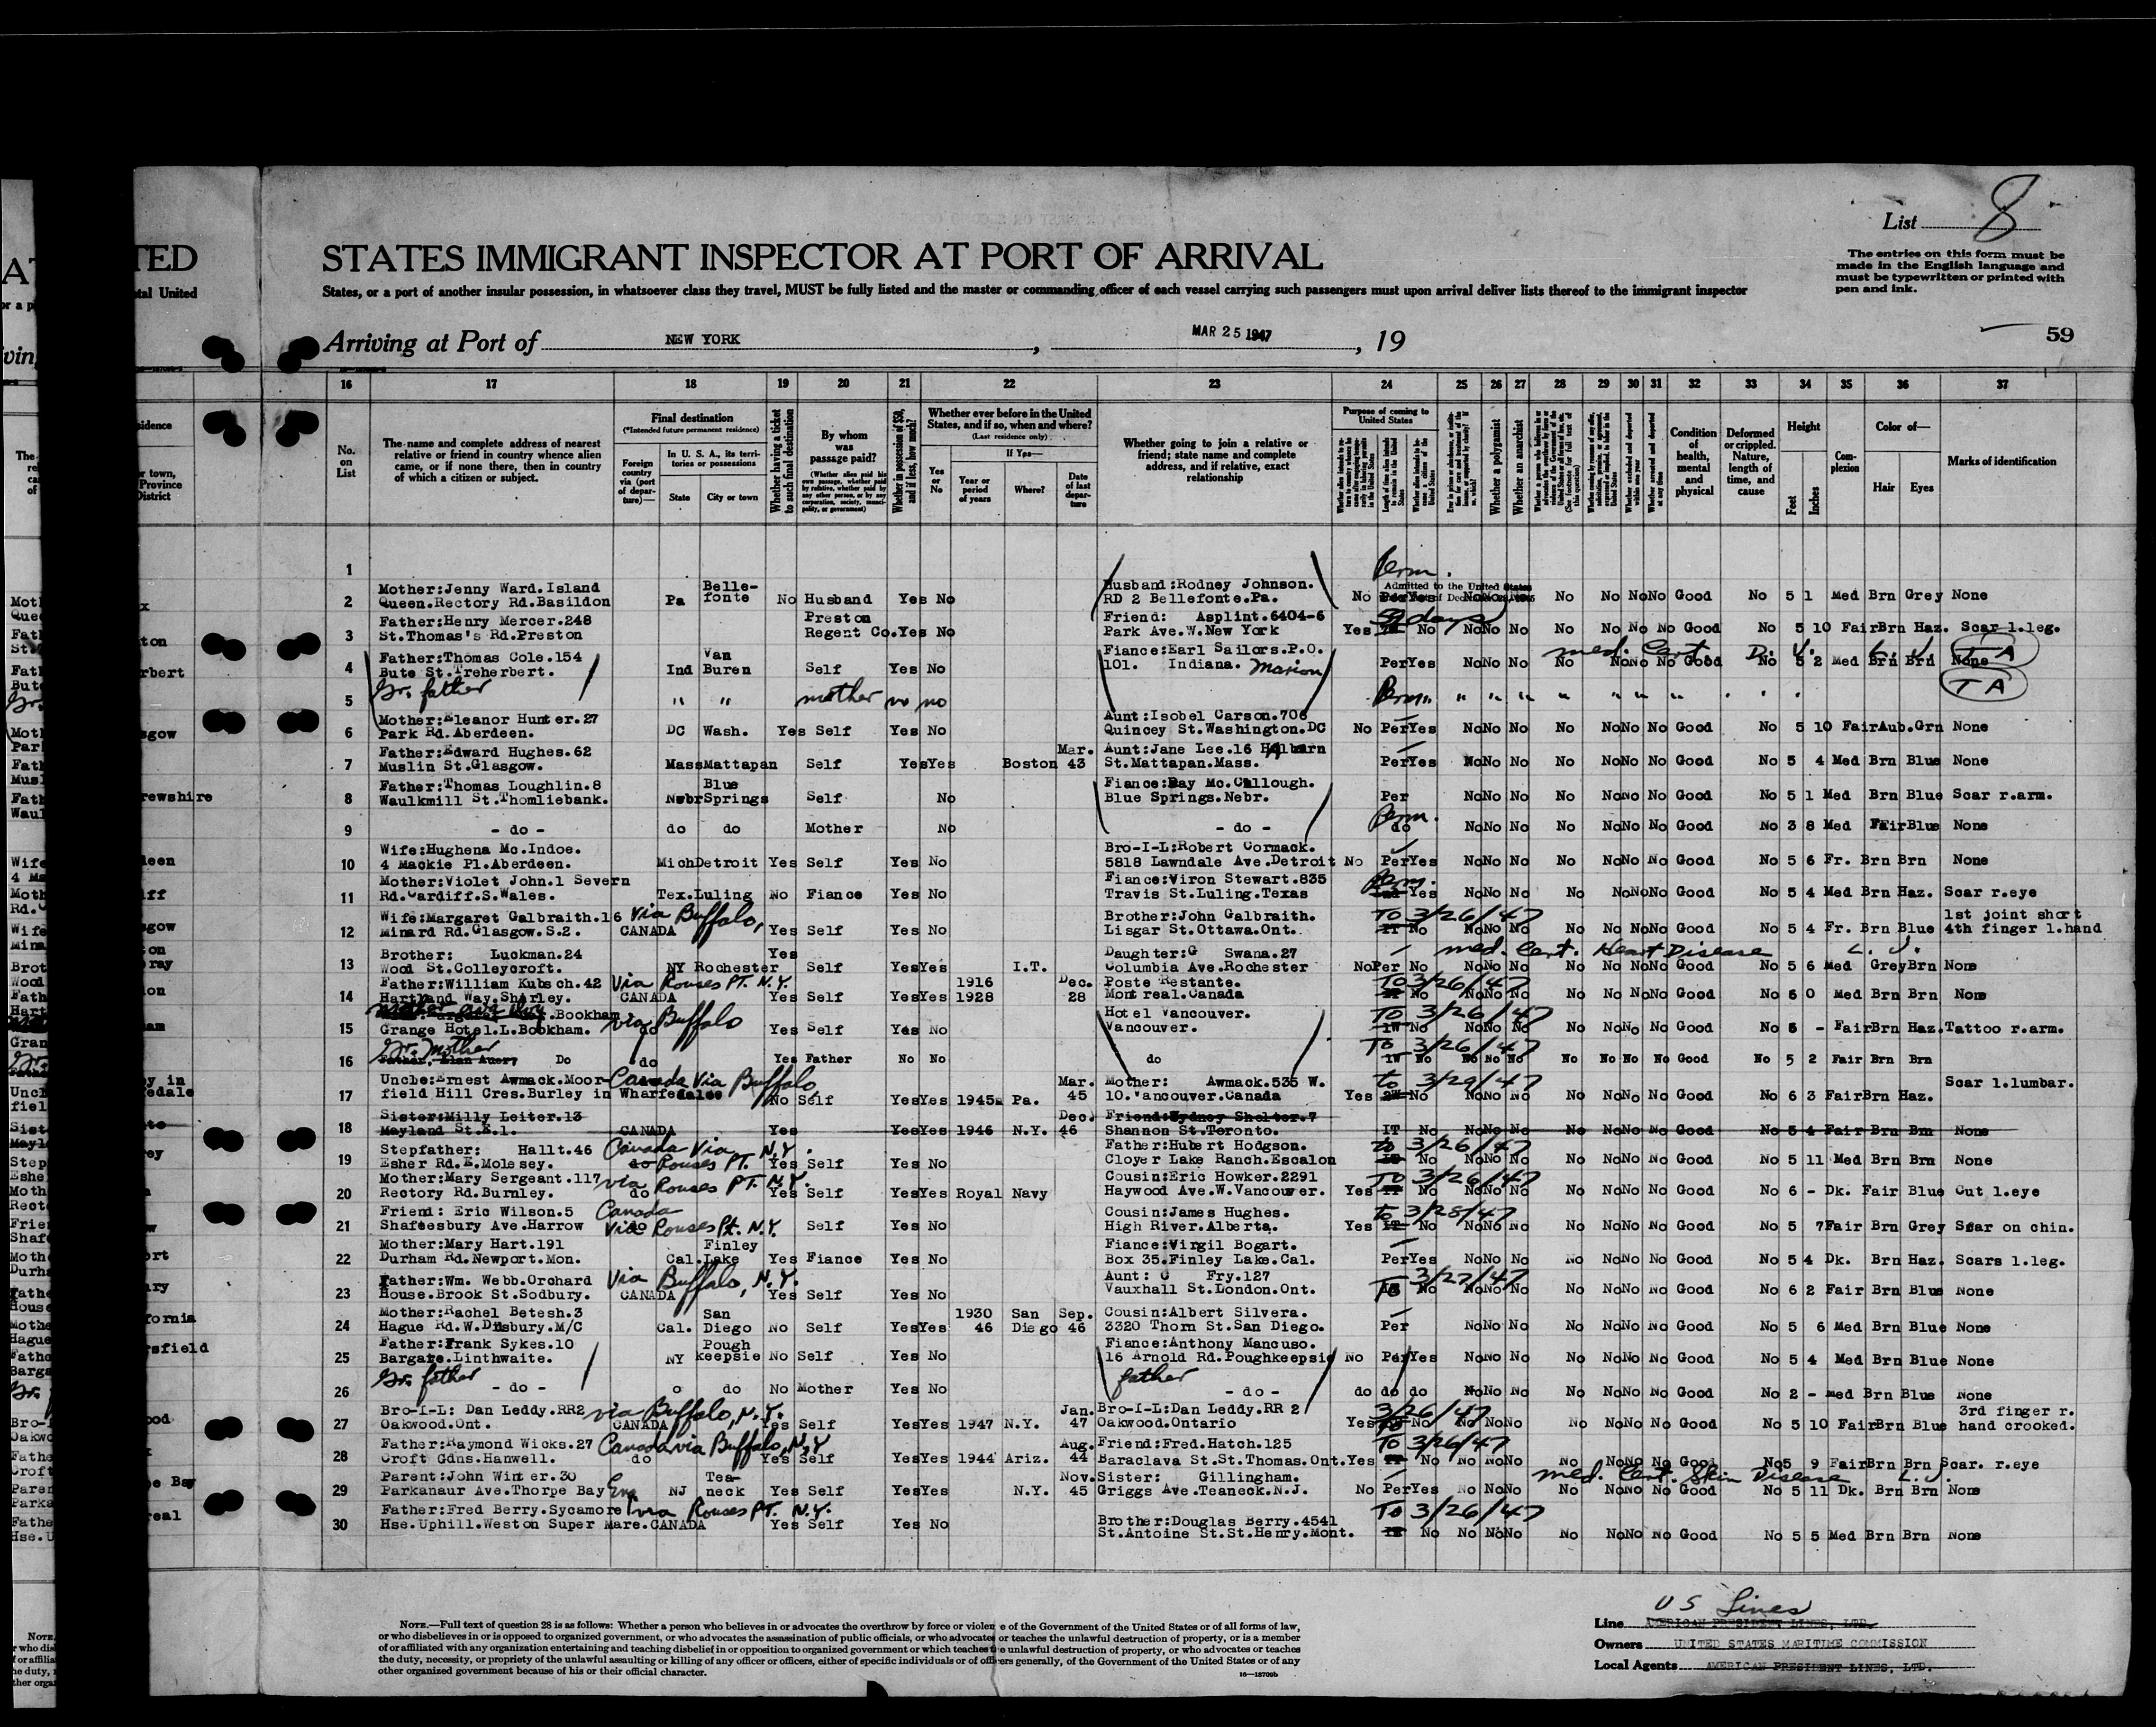 List 8
STATES IMMIGRANT INSPECTOR AT PORT OF ARRIVAL
The entries on this form must be
made in the English language and
must be typewritten or printed with
pen and ink.
States, or a port of another insular possession, in whatsoever class they travel, MUST be fully listed and the master or commanding officer of each vessel carrying such passengers must upon arrival deliver lists thereof to the immigrant inspector
Arriving at Port of NEW YORK, MAR 25 1947, 19
59
16 17 18 19 20 21 22 23 24 25 26 27 28 29 30 31 32 33 34 35 36 37
No. on List
The name and complete address of nearest
relative or friend in country whence alien
came, or if none there, then in country
of which a citizen or subject.
Final destination
(*Intended future permanent residence)
Foreign country via (port of departure)—
In U. S. A., its territories or possessions
State City or town
Whether having a ticket to such final destination
By whom was passage paid?
(Whether alien paid his own passage, whether paid by relative, whether paid by any other person, or by any corporation, society, municipality, or government)
Whether in possession of $50, and if less, how much?
Whether ever before in the United
States, and if so, when and where?
(Last residence only)
If Yes—
Yes or No
Year or period of years
Where?
Date of last departure
Whether going to join a relative or
friend; state name and complete
address, and if relative, exact
relationship
Purpose of coming to United States
Whether a polygamist
Whether an anarchist
Condition of health, mental and physical
Deformed or crippled. Nature, length of time, and cause
Height
Feet Inches
Complexion
Color of—
Hair Eyes
Marks of identification
1
Perm.
Admitted to the United States
Mother:Jenny Ward.Island Belle- Husband:Rodney Johnson.
2 Queen.Rectory Rd.Basildon Pa fonte No Husband Yes No RD 2 Bellefonte.Pa. No Per Yes No No No No No No No Good No 5 1 Med Brn Grey None
Father:Henry Mercer.248 Preston Friend: Asplint.6404-6 59 days
3 St.Thomas's Rd.Preston Regent Co.Yes No Park Ave.W.New York Yes No No No No No No No No Good No 5 10 Fair Brn Haz. Scar l.leg.
Father:Thomas Cole.154 Van Fiance:Earl Sailors.P.O. med. Cert. D. V. L. J. T A
4 Bute St.Treherbert. Ind Buren Self Yes No 101. Indiana. Marion Per Yes No No No No No No No Good No 5 2 Med Brn Brn None
5 Gr. father " " mother no no Perm. " " " " " " " " T A
Mother:Eleanor Hunter.27 Aunt:Isobel Carson.706
6 Park Rd.Aberdeen. DC Wash. Yes Self Yes No Quincey St.Washington.DC No Per Yes No No No No No No No Good No 5 10 Fair Aub.Grn None
Father:Edward Hughes.62 Mar. Aunt:Jane Lee.16
7 Muslin St.Glasgow. Mass Mattapan Self Yes Yes Boston 43 St.Mattapan.Mass. Per Yes No No No No No No No Good No 5 4 Med Brn Blue None
Father:Thomas Loughlin.8 Blue Fiance:Ray Mc.Cullough.
8 Waulkmill St.Thomliebank. Nebr Springs Self No Blue Springs.Nebr. Per No No No No No No No Good No 5 1 Med Brn Blue Scar r.arm.
9 - do - do do Mother No - do - Perm. do No No No No No No No Good No 3 8 Med Fair Blue None
Wife:Hughena Mc.Indoe. Bro-I-L:Robert Cormack.
10 4 Mackie Pl.Aberdeen. Mich Detroit Yes Self Yes No 5818 Lawndale Ave.Detroit No Per Yes No No No No No No No Good No 5 6 Fr. Brn Brn None
Mother:Violet John.1 Severn Fiance:Viron Stewart.835 Perm.
11 Rd.Cardiff.S.Wales. Tex.Luling No Fiance Yes No Travis St.Luling.Texas Yes No No No No No No No Good No 5 4 Med Brn Haz. Scar r.eye
Wife:Margaret Galbraith.16 via Buffalo, Brother:John Galbraith. TO 3/26/47 1st joint short
12 Minard Rd.Glasgow.S.2. CANADA Yes Self Yes No Lisgar St.Ottawa.Ont. No No No No No No No No Good No 5 4 Fr. Brn Blue 4th finger l.hand
Brother: Luckman.24 Yes Daughter:G Swana.27 med. Cert. Heart Disease L. J.
13 Wood St.Colleycroft. NY Rochester Self Yes Yes I.T. Columbia Ave.Rochester No Per No No No No No No No No Good No 5 6 Med Grey Brn None
Father:William Kubsch.42 Via Rouses PT. N.Y. 1916 Dec. Poste Restante. TO 3/26/47
14 Hartland Way.Shirley. CANADA Yes Self Yes Yes 1928 28 Montreal.Canada No No No No No No No No Good No 6 0 Med Brn Brn None
Bookham via Buffalo Hotel Vancouver. TO 3/26/47
15 Grange Hotel.L.Bookham. do Yes Self Yes No Vancouver. No No No No No No No No Good No 5 - Fair Brn Haz.Tattoo r.arm.
Gr. Mother TO 3/26/47
16 Do do Yes Father No No do No No No No No No No No Good No 5 2 Fair Brn Brn
Uncle:Ernest Awmack.Moor- Canada Via Buffalo Mar. Mother: Awmack.535 W. to 3/29/47 Scar l.lumbar.
17 field Hill Cres.Burley in Wharfedale No Self Yes Yes 1945 Pa. 45 10.Vancouver.Canada Yes No No No No No No No No Good No 6 3 Fair Brn Haz.
Sister:Milly Leiter.13 Dec. Friend:Sydney Shelter.7
18 Mayland St.E.1. CANADA Yes Yes Yes 1946 N.Y. 46 Shannon St.Toronto. IT No No No No No No No No Good No 5 4 Fair Brn Brn None
Stepfather: Hallt.46 Canada Via N.Y. Father:Hubert Hodgson. to 3/26/47
19 Esher Rd.E.Molesey. Rouses PT. Yes Self Yes No Cloyer Lake Ranch.Escalon No No No No No No No No Good No 5 11 Med Brn Brn None
Mother:Mary Sergeant.117 via Rouses PT. N.Y. Cousin:Eric Howker.2291 TO 3/26/47
20 Rectory Rd.Burnley. do Yes Self Yes Yes Royal Navy Haywood Ave.W.Vancouver. Yes No No No No No No No No Good No 6 - Dk. Fair Blue Cut l.eye
Friend: Eric Wilson.5 Canada Cousin:James Hughes. to 3/28/47
21 Shaftesbury Ave.Harrow Via Rouses Pt. N.Y. Self Yes No High River.Alberta. Yes No No No No No No No No Good No 5 7 Fair Brn Grey Scar on chin.
Mother:Mary Hart.191 Finley Fiance:Virgil Bogart.
22 Durham Rd.Newport.Mon. Cal.Lake Yes Fiance Yes No Box 35.Finley Lake.Cal. Per Yes No No No No No No No Good No 5 4 Dk. Brn Haz. Scars l.leg.
Father:Wm. Webb.Orchard Via Buffalo, N.Y. Aunt: C Fry.127 TO 3/27/47
23 House.Brook St.Sodbury. CANADA Yes Self Yes No Vauxhall St.London.Ont. No No No No No No No No Good No 6 2 Fair Brn Blue None
Mother:Rachel Betesh.3 San 1930 San Sep. Cousin:Albert Silvera.
24 Hague Rd.W.Didsbury.M/C Cal. Diego No Self Yes Yes 46 Diego 46 3320 Thorn St.San Diego. Per No No No No No No No Good No 5 6 Med Brn Blue None
Father:Frank Sykes.10 Pough Fiance:Anthony Mancuso.
25 Bargate.Linthwaite. NY keepsie No Self Yes No 16 Arnold Rd.Poughkeepsie No Per Yes No No No No No No No Good No 5 4 Med Brn Blue None
Gr. father father
26 - do - o do No Mother Yes No - do - do do do No No No No No No No Good No 2 - med Brn Blue None
Bro-I-L: Dan Leddy.RR2 via Buffalo, N.Y. Jan. Bro-I-L:Dan Leddy.RR 2 3/26/47 3rd finger r.
27 Oakwood.Ont. CANADA Yes Self Yes Yes 1947 N.Y. 47 Oakwood.Ontario Yes No No No No No No No No Good No 5 10 Fair Brn Blue hand crooked.
Father:Raymond Wicks.27 Canada via Buffalo, N.Y Aug. Friend:Fred.Hatch.125 TO 3/26/47
28 Croft Gdns.Hanwell. do Yes Self Yes Yes 1944 Ariz. 44 Baraclava St.St.Thomas.Ont.Yes No No No No No No No No Good No 5 9 Fair Brn Brn Scar. r.eye
Parent:John Winter.30 Tea- Nov. Sister: Gillingham. med. Cert. Skin Disease L. J.
29 Parkanaur Ave.Thorpe Bay Eng NJ neck Yes Self Yes Yes N.Y. 45 Griggs Ave.Teaneck.N.J. No Per Yes No No No No No No No Good No 5 11 Dk. Brn Brn None
Father:Fred Berry.Sycamore via Rouses PT. N.Y. Brother:Douglas Berry.4541 TO 3/26/47
30 Hse.Uphill.Weston Super Mare.CANADA Yes Self Yes No St.Antoine St.St.Henry.Mont. No No No No No No No No Good No 5 5 Med Brn Brn None
NOTE.—Full text of question 28 is as follows: Whether a person who believes in or advocates the overthrow by force or violence of the Government of the United States or of all forms of law,
or who disbelieves in or is opposed to organized government, or who advocates the assassination of public officials, or who advocates or teaches the unlawful destruction of property, or is a member
of or affiliated with any organization entertaining and teaching disbelief in or opposition to organized government or which teaches the unlawful destruction of property, or who advocates or teaches
the duty, necessity, or propriety of the unlawful assaulting or killing of any officer or officers, either of specific individuals or of officers generally, of the Government of the United States or of any
other organized government because of his or their official character.
16—18709b
US Lines
Line AMERICAN PRESIDENT LINES, LTD.
Owners UNITED STATES MARITIME COMMISSION
Local Agents AMERICAN PRESIDENT LINES, LTD.